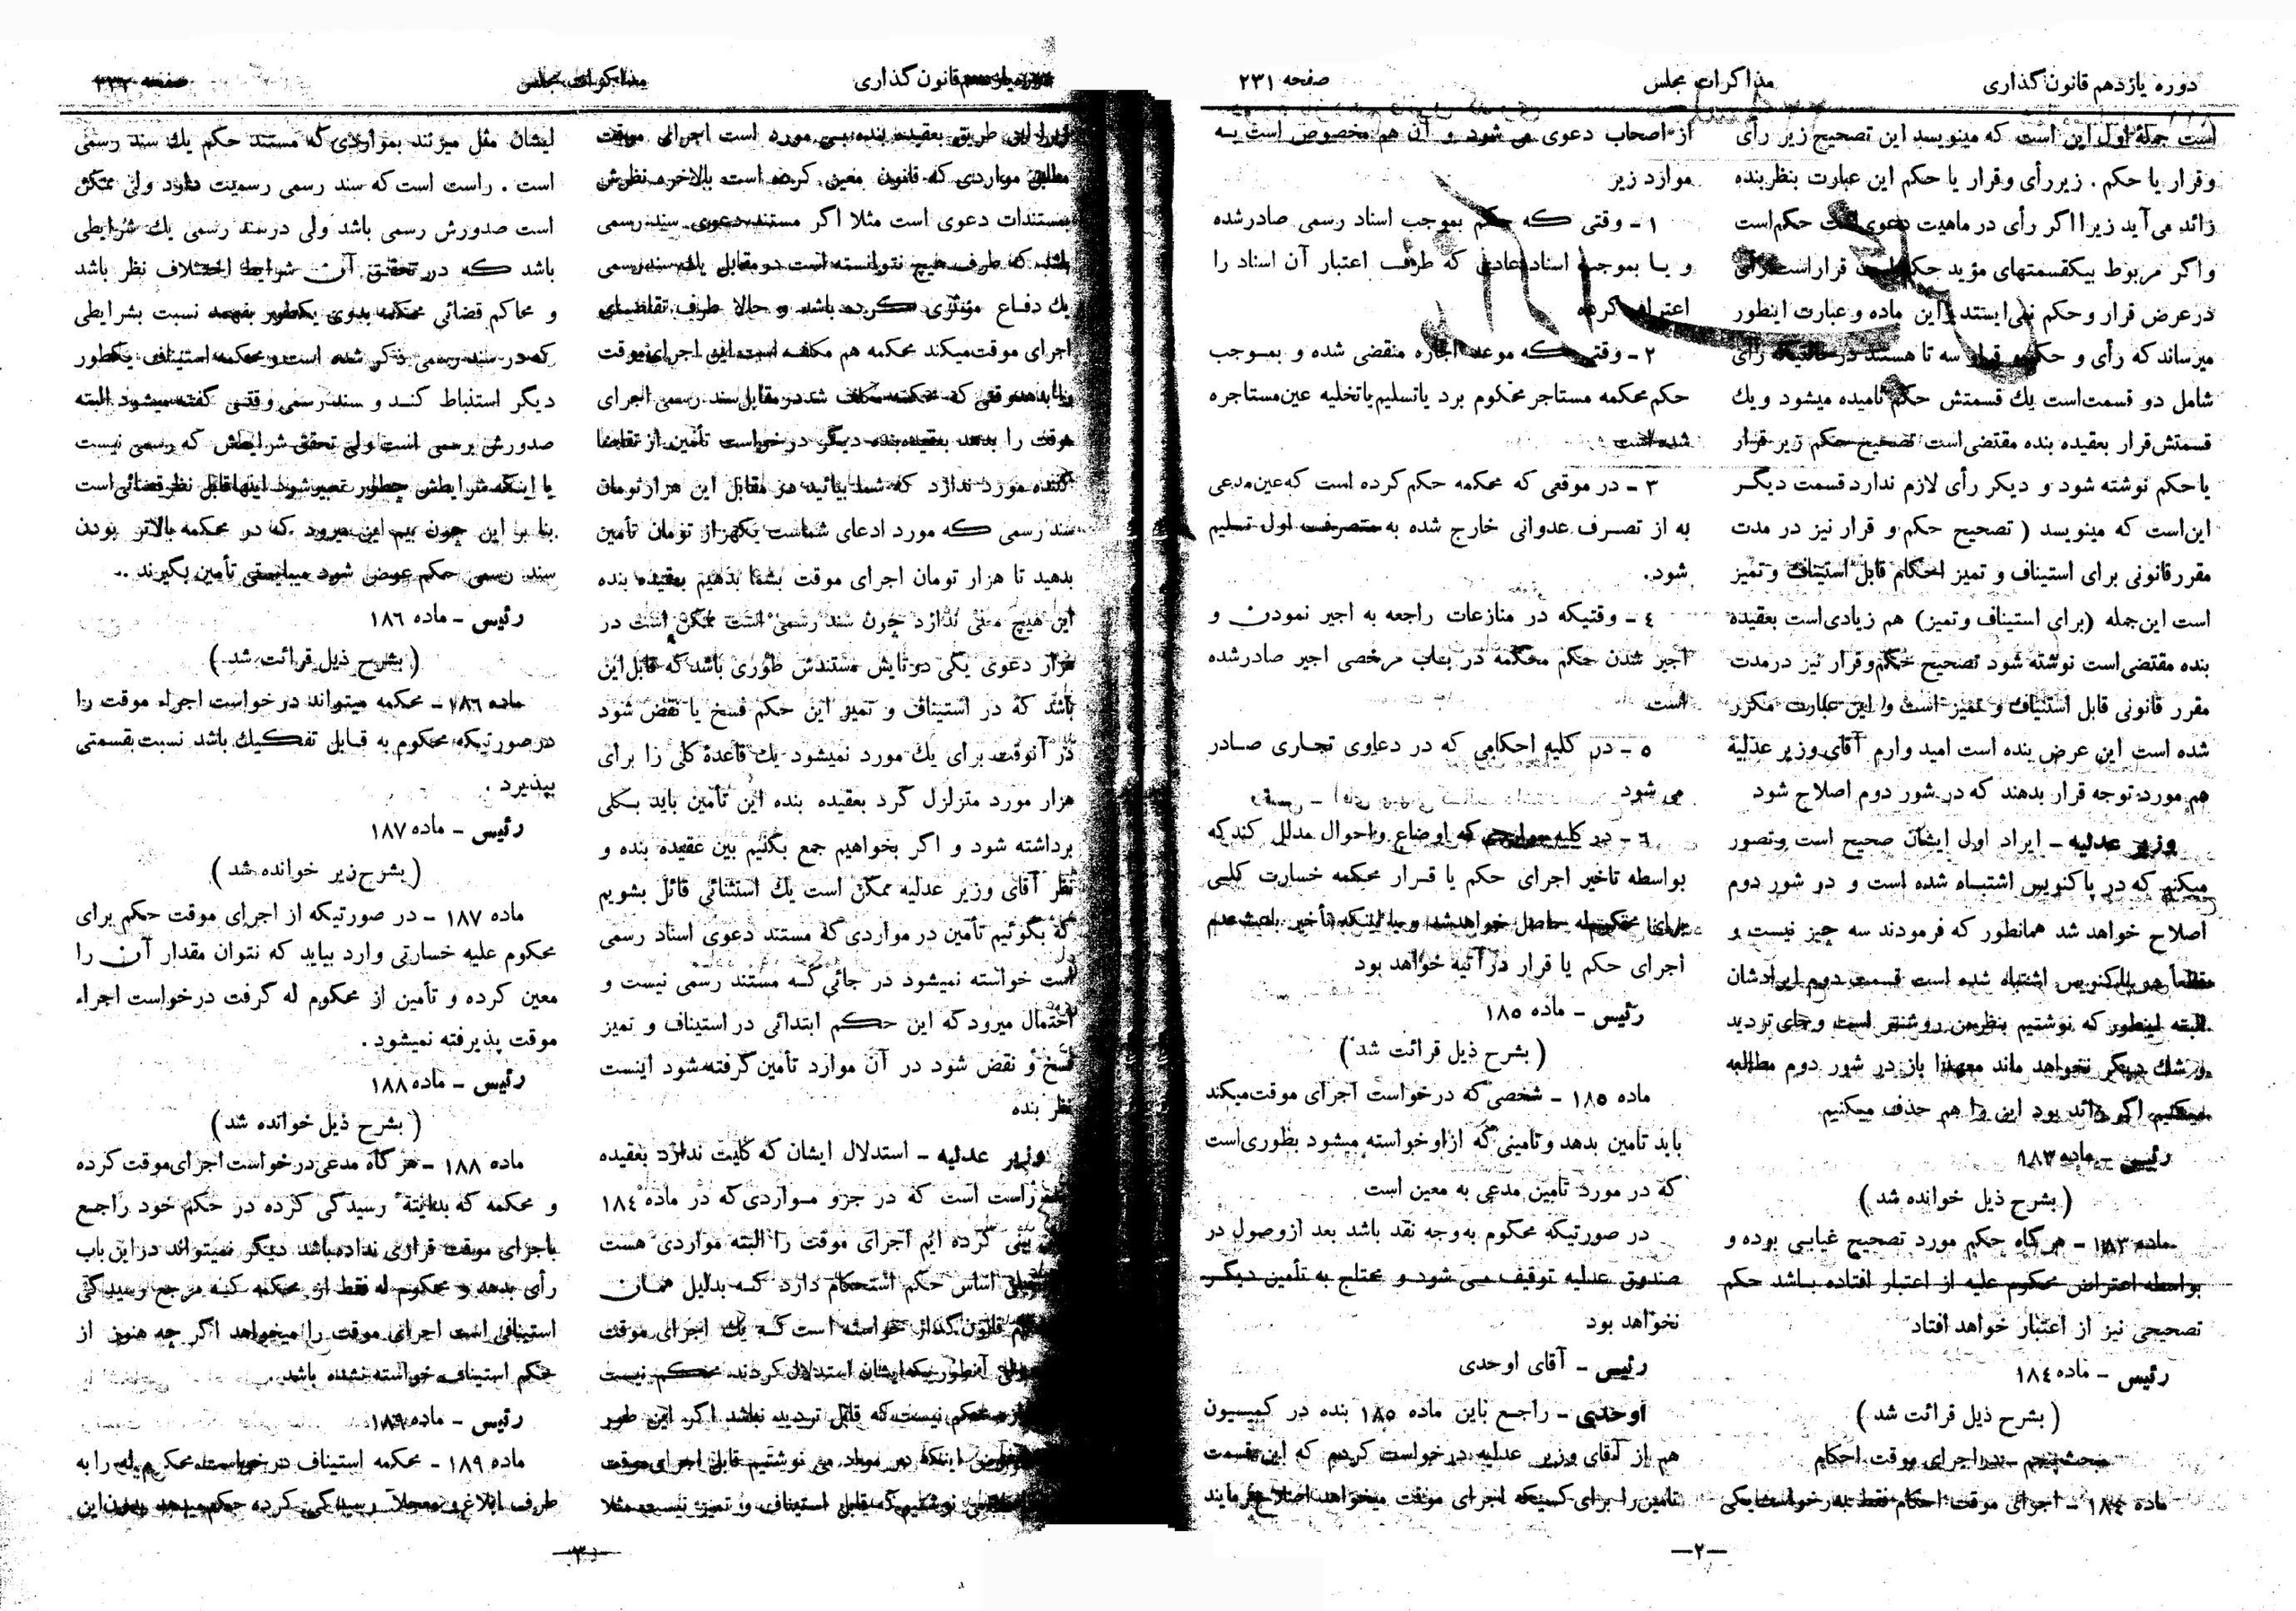 دوره یازدهم قانون‌گذاری
مذاکرات مجلس
صفحه ۲۳۱
است جملهٔ اول این است که مینویسد این تصحیح زیر رأی
وقرار یا حکم . زیررأی وقرار یا حکم این عبارت بنظربنده
زائد می‌آید زیرا اگر رأی در ماهیت دعوی است حکم‌است
واگر مربوط بیکقسمتهای مؤید حکم است قراراست رأی
درعرض قرار وحکم نمی‌ایستد این ماده و عبارت اینطور
میرساند که رأی و حکم و قرار سه تا هستند در حالتیکه رأی
شامل دو قسمت‌است یك قسمتش حکم نامیده میشود ویك
قسمتش‌قرار بعقیده بنده مقتضی‌است تصحیح حکم زیر قرار
یاحکم نوشته شود و دیکر رأی لازم ندارد قسمت دیگر
این‌است که مینویسد ( تصحیح حکم و قرار نیز در مدت
مقررقانونی برای استیناف و تمیز احکام قابل استیناف و تمیز
است این‌جمله (برای استیناف و تمیز) هم زیادی‌است بعقیدهٔ
بنده مقتضی‌است نوشته شود تصحیح حکم‌وقرار نیز درمدت
مقرر قانونی قابل استیناف و تمیز است و این عبارت مکرر
شده است این عرض بنده است امید وارم آقای وزیر عدلیه
هم مورد توجه قرار بدهند که در شور دوم اصلاح شود
وزیر عدلیه – ایراد اولی ایشان صحیح است وتصور
میکنم که در پاکنویس اشتباه شده است و در شور دوم
اصلاح خواهد شد همانطور که فرمودند سه چیز نیست و
در پاکنویس اشتباه شده است قسمت دوم ایرادشان
البته اینطور که نوشتیم بنظرمن روشنتر است وجای تردید
و شك دیکر نخواهد ماند معهذا باز در شور دوم مطالعه
میکنیم اگر زائد بود این را هم حذف میکنیم
رئیس – ماده ۱۸۳
( بشرح ذیل خوانده شد )
ماده ۱۸۳ – هرگاه حکم مورد تصحیح غیابی بوده و
بواسطه اعتراض محکوم علیه از اعتبار افتاده باشد حکم
تصحیحی نیز از اعتبار خواهد افتاد
رئیس – ماده ۱۸٤
( بشرح ذیل قرائت شد )
مبحث پنجم – در اجرای موقت احکام
ماده ۱۸٤ – اجرای موقت احکام فقط بدرخواست یکی
از اصحاب دعوی می شود و آن هم مخصوص است به
موارد زیر
۱ – وقتی که حکم بموجب اسناد رسمی صادرشده
و یا بموجب اسنادعادی که طرف اعتبار آن اسناد را
اعتراف کرده
۲ – وقتی که موعد اجاره منقضی شده و بموجب
حکم‌محکمه مستاجر محکوم برد یاتسلیم یاتخلیه عین‌مستاجره
شده است
۳ – در موقعی که محکمه حکم کرده است که عین‌مدعی
به از تصرف عدوانی خارج شده به متصرف اول تسلیم
شود.
٤ – وقتیکه در منازعات راجعه به اجیر نمودن و
اجیر شدن حکم محکمه در باب مرخصی اجیر صادرشده
است
٥ – در کلیه احکامی که در دعاوی تجاری صادر
می شود
٦ – در کلیه مواردی که اوضاع و احوال مدلل کند که
بواسطه تاخیر اجرای حکم یا قرار محکمه خسارت کلی
برای محکوم‌له حاصل خواهدشد و یا اینکه تأخیر باعث عدم
اجرای حکم یا قرار درآتیه خواهد بود
رئیس – ماده ۱۸٥
( بشرح ذیل قرائت شد )
ماده ۱۸٥ – شخصی که درخواست اجرای موقت‌میکند
باید تامین بدهد وتامینی که ازاوخواسته میشود بطوری‌است
که در مورد تامین مدعی به معین است
در صورتیکه محکوم به‌وجه نقد باشد بعد ازوصول در
صندوق عدلیه توقیف می شود و محتاج به تأمین دیگر
نخواهد بود
رئیس – آقای اوحدی
اوحدی – راجع باین ماده ۱۸٥ بنده در کمیسیون
هم از آقای وزیر عدلیه درخواست کردیم که این‌قسمت
تامین‌را برای کسیکه اجرای موقت میخواهد اصلاح فرمایند
–۲–
قانون‌گذاری
مذاکرات مجلس
صفحه ۲۳۲
زیرا این طریق بعقیده بنده بی مورد است اجرای موقت
مطابق مواردی که قانون معین کرده است بالاخره نظرش
بمستندات دعوی است مثلا اگر مستند دعوی سند رسمی
باشد که طرف هیچ نتوانسته است در مقابل یك سند رسمی
یك دفاع مؤثری کرده باشد و حالا طرف تقاضای
اجرای موقت‌میکند محکمه هم مکلف است این اجرای‌موقت
را بدهد وقتی که محکمه مکلف شد در مقابل سند رسمی اجرای
موقت را بدهد بعقیده بنده دیگر درخواست تأمین از تقاضا
کننده مورد ندارد که شما بیائید در مقابل این هزار تومان
سند رسمی که مورد ادعای شماست یکهزار تومان تأمین
بدهید تا هزار تومان اجرای موقت بشما بدهیم بعقیده بنده
این هیچ معنی ندارد چون سند رسمی است ممکن است در
هزار دعوی یکی دو تایش مستندش طوری باشد که قابل‌این
باشد که در استیناف و تمیز این حکم فسخ یا نقض شود
در آنوقت برای یك مورد نمیشود یك قاعدهٔ کلی را برای
هزار مورد متزلزل کرد بعقیده بنده این تأمین باید بکلی
برداشته شود و اگر بخواهیم جمع بکنیم بین عقیده بنده و
نظر آقای وزیر عدلیه ممکن است یك استثنائی قائل بشویم
که بگوئیم تأمین در مواردی که مستند دعوی اسناد رسمی
است خواسته نمیشود در جائی که مستند رسمی نیست و
احتمال میرود که این حکم ابتدائی در استیناف و تمیز
فسخ و نقض شود در آن موارد تأمین گرفته‌شود اینست
نظر بنده
وزیر عدلیه – استدلال ایشان که کلیت ندارد بعقیده
راست است که در جزو مواردی که در ماده ۱۸٤
بینی کرده ایم اجرای موقت را البته مواردی هست
اساس حکم استحکام دارد که بدلیل همان
قانون‌گذار خواسته است که یك اجرای موقت
آنطوریکه ایشان استدلال کردند محکم نیست
محکم نیست که قابل تردید نباشد اگر این طور
اینکه در مواد می نوشتیم قابل اجرای موقت
نوشتیم که قابل استیناف و تمیز نیست مثلا
ایشان مثل میزنند بمواردی که مستند حکم یك سند رسمی
است . راست است که سند رسمی رسمیت دارد ولی ممکن
است صدورش رسمی باشد ولی درسند رسمی یك شرایطی
باشد که در تحقق آن شرایط اختلاف نظر باشد
و محاکم قضائی محکمه بدوی یکطور بفهمد نسبت بشرایطی
که در سند رسمی ذکر شده است و محکمه استیناف یکطور
دیگر استنباط کند و سند رسمی وقتی گفته میشود البته
صدورش رسمی است ولی تحقق شرایطش که رسمی نیست
یا اینکه شرایطش چطور تعبیر شود اینها قابل نظر قضائی‌است
بنا بر این چون بیم این میرود که در محکمه بالاتر بودن
سند رسمی حکم عوض شود میبایستی تأمین بگیرند ..
رئیس – ماده ۱۸٦
( بشرح ذیل قرائت شد )
ماده ۱۸٦ – محکمه میتواند درخواست اجراء موقت را
درصورتیکه محکوم به قابل تفکیك باشد نسبت بقسمتی
بپذیرد .
رئیس – ماده ۱۸۷
( بشرح زیر خوانده شد )
ماده ۱۸۷ – در صورتیکه از اجرای موقت حکم برای
محکوم علیه خسارتی وارد بیاید که نتوان مقدار آن را
معین کرده و تأمین از محکوم له گرفت درخواست اجراء
موقت پذیرفته نمیشود .
رئیس – ماده ۱۸۸
( بشرح ذیل خوانده شد )
ماده ۱۸۸ – هر گاه مدعی درخواست اجرای موقت کرده
و محکمه که بدایتهٔ رسیدگی کرده در حکم خود راجع
باجرای موقت قراری نداده باشد دیگر نمیتواند دراین باب
رأی بدهد و محکوم له فقط از محکمه که مرجع رسیدگی
استینافی است اجرای موقت را میخواهد اگر چه هنوز از
حکم استیناف خواسته نشده باشد .
رئیس – ماده ۱۸۹
ماده ۱۸۹ – محکمه استیناف درخواست محکوم له را به
طرف ابلاغ و معجلاً رسیدگی کرده حکم میدهد بدون این
–۳–